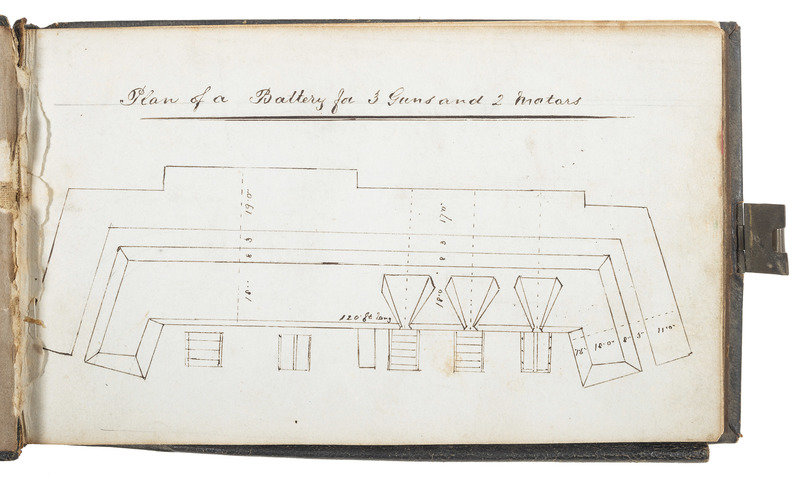 Plan of a Battery for 3 Guns and 2 Motars
19.0
17.0
8 3
8 3
18.0
18.0
120 ft long
18.0
8
3
11.0